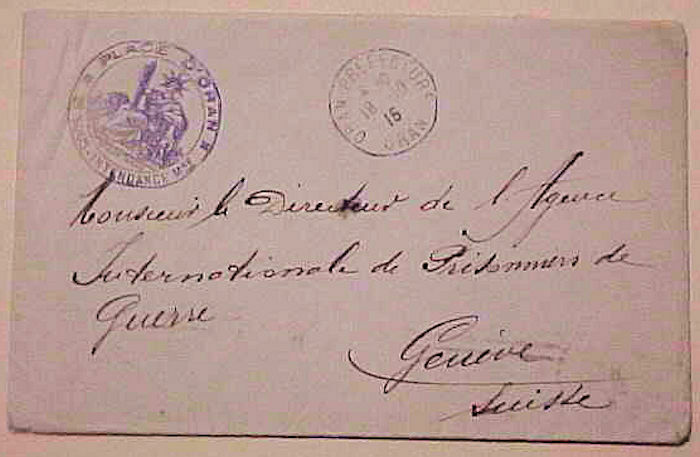 PLACE D'ORAN
SOUS-INTENDANCE Mre
ORAN PREFECTURE
18
16
ORAN
Monsieur le Directeur de l'Agence
Internationale de Prisonniers de
Guerre
Genève
Suisse